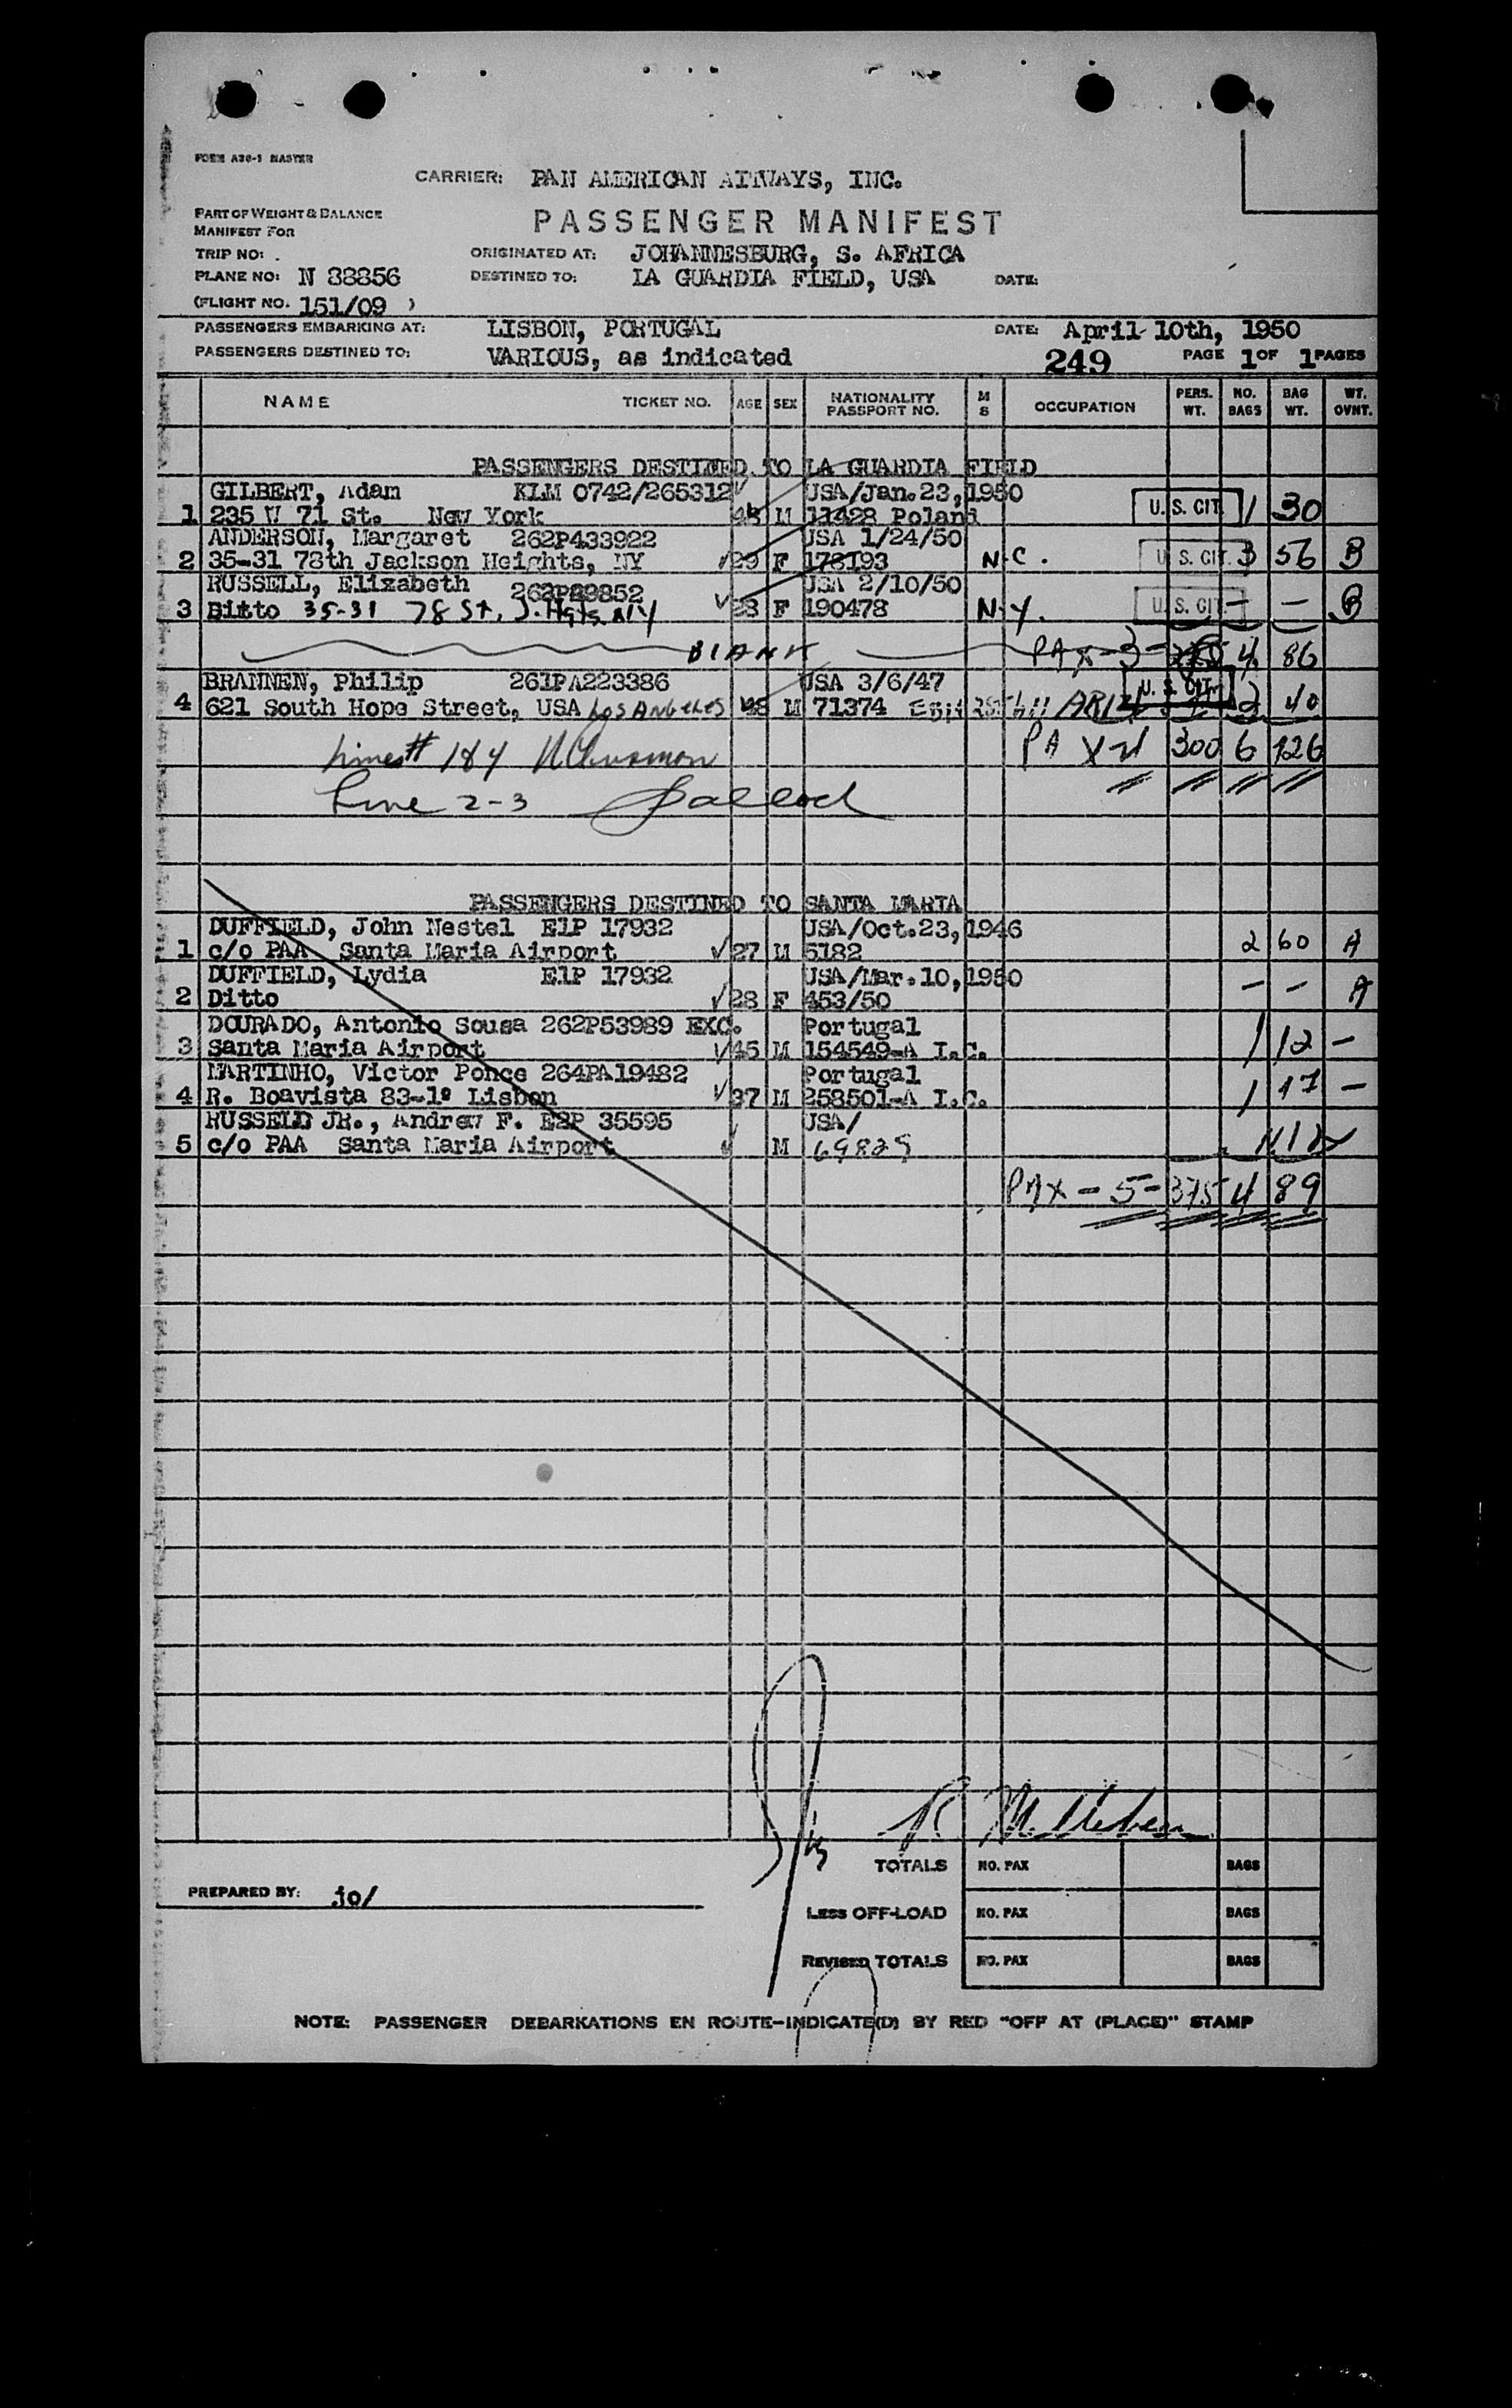 FORM A30-1 MASTER
CARRIER: PAN AMERICAN AIRWAYS, INC.
PART OF WEIGHT & BALANCE
MANIFEST FOR
PASSENGER MANIFEST
TRIP NO: .
ORIGINATED AT: JOHANNESBURG, S. AFRICA
PLANE NO: N 88856
DESTINED TO: LA GUARDIA FIELD, USA DATE:
(FLIGHT NO. 151/09 )
PASSENGERS EMBARKING AT: LISBON, PORTUGAL DATE: April 10th, 1950
PASSENGERS DESTINED TO: VARIOUS, as indicated 249 PAGE 1 OF 1 PAGES
NAME TICKET NO. AGE SEX NATIONALITY PASSPORT NO. M S OCCUPATION PERS. WT. NO. BAGS BAG WT. WT. OVNT.
PASSENGERS DESTINED TO LA GUARDIA FIELD
GILBERT, Adam KLM 0742/265312 USA/Jan.23,1950
1 235 W 71 St. New York M 11428 Poland U.S. CIT. 1 30
ANDERSON, Margaret 262P433922 USA 1/24/50
2 35-31 78th Jackson Heights, NY 29 F 178193 N.C. U.S. CIT. 3 56 B
RUSSELL, Elizabeth USA 2/10/50
3 Ditto 35-31 78 St. J. Hgts NY 28 F 190478 N.Y. U.S. CIT. — — B
BLANK PAX-3- 4 86
BRANNEN, Philip 261PA223386 USA 3/6/47
4 621 South Hope Street, USA LOS ANGELES 48 M 71374 U.S. CIT. 2 40
PAX 300 6 126
Lines# 1&4
Line 2-3
PASSENGERS DESTINED TO SANTA MARIA
DUFFIELD, John Nestel E1P 17932 USA/Oct.23,1946
1 c/o PAA Santa Maria Airport 27 M 5182 2 60 A
DUFFIELD, Lydia E1P 17932 USA/Mar.10,1950
2 Ditto 28 F 453/50 — — A
DOURADO, Antonio Sousa 262P53989 EXC. Portugal
3 Santa Maria Airport 45 M 154549-A I.C. 1 12 —
MARTINHO, Victor Ponce 264PA19482 Portugal
4 R. Boavista 83-1º Lisbon 37 M 258501-A I.C. 1 17 —
RUSSELL JR., Andrew F. E2P 35595 USA/
5 c/o PAA Santa Maria Airport M 69825
PAX - 5 - 375 4 89
TOTALS NO. PAX BAGS
PREPARED BY: jo/
LESS OFF-LOAD NO. PAX BAGS
REVISED TOTALS NO. PAX BAGS
NOTE: PASSENGER DEBARKATIONS EN ROUTE-INDICATE(D) BY RED "OFF AT (PLACE)" STAMP